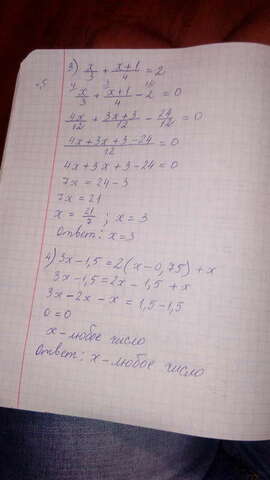 3) x/3 + (x+1)/4 = 2
x/3 + (x+1)/4 - 2 = 0
4x/12 + (3x+3)/12 - 24/12 = 0
(4x+3x+3-24)/12 = 0
4x+3x+3-24=0
7x = 24-3
7x = 21
x = 21/7 ; x = 3
Ответ: x=3
4) 3x-1,5=2(x-0,75)+x
3x-1,5=2x-1,5+x
3x-2x-x=1,5-1,5
0=0
x-любое число
Ответ: x-любое число